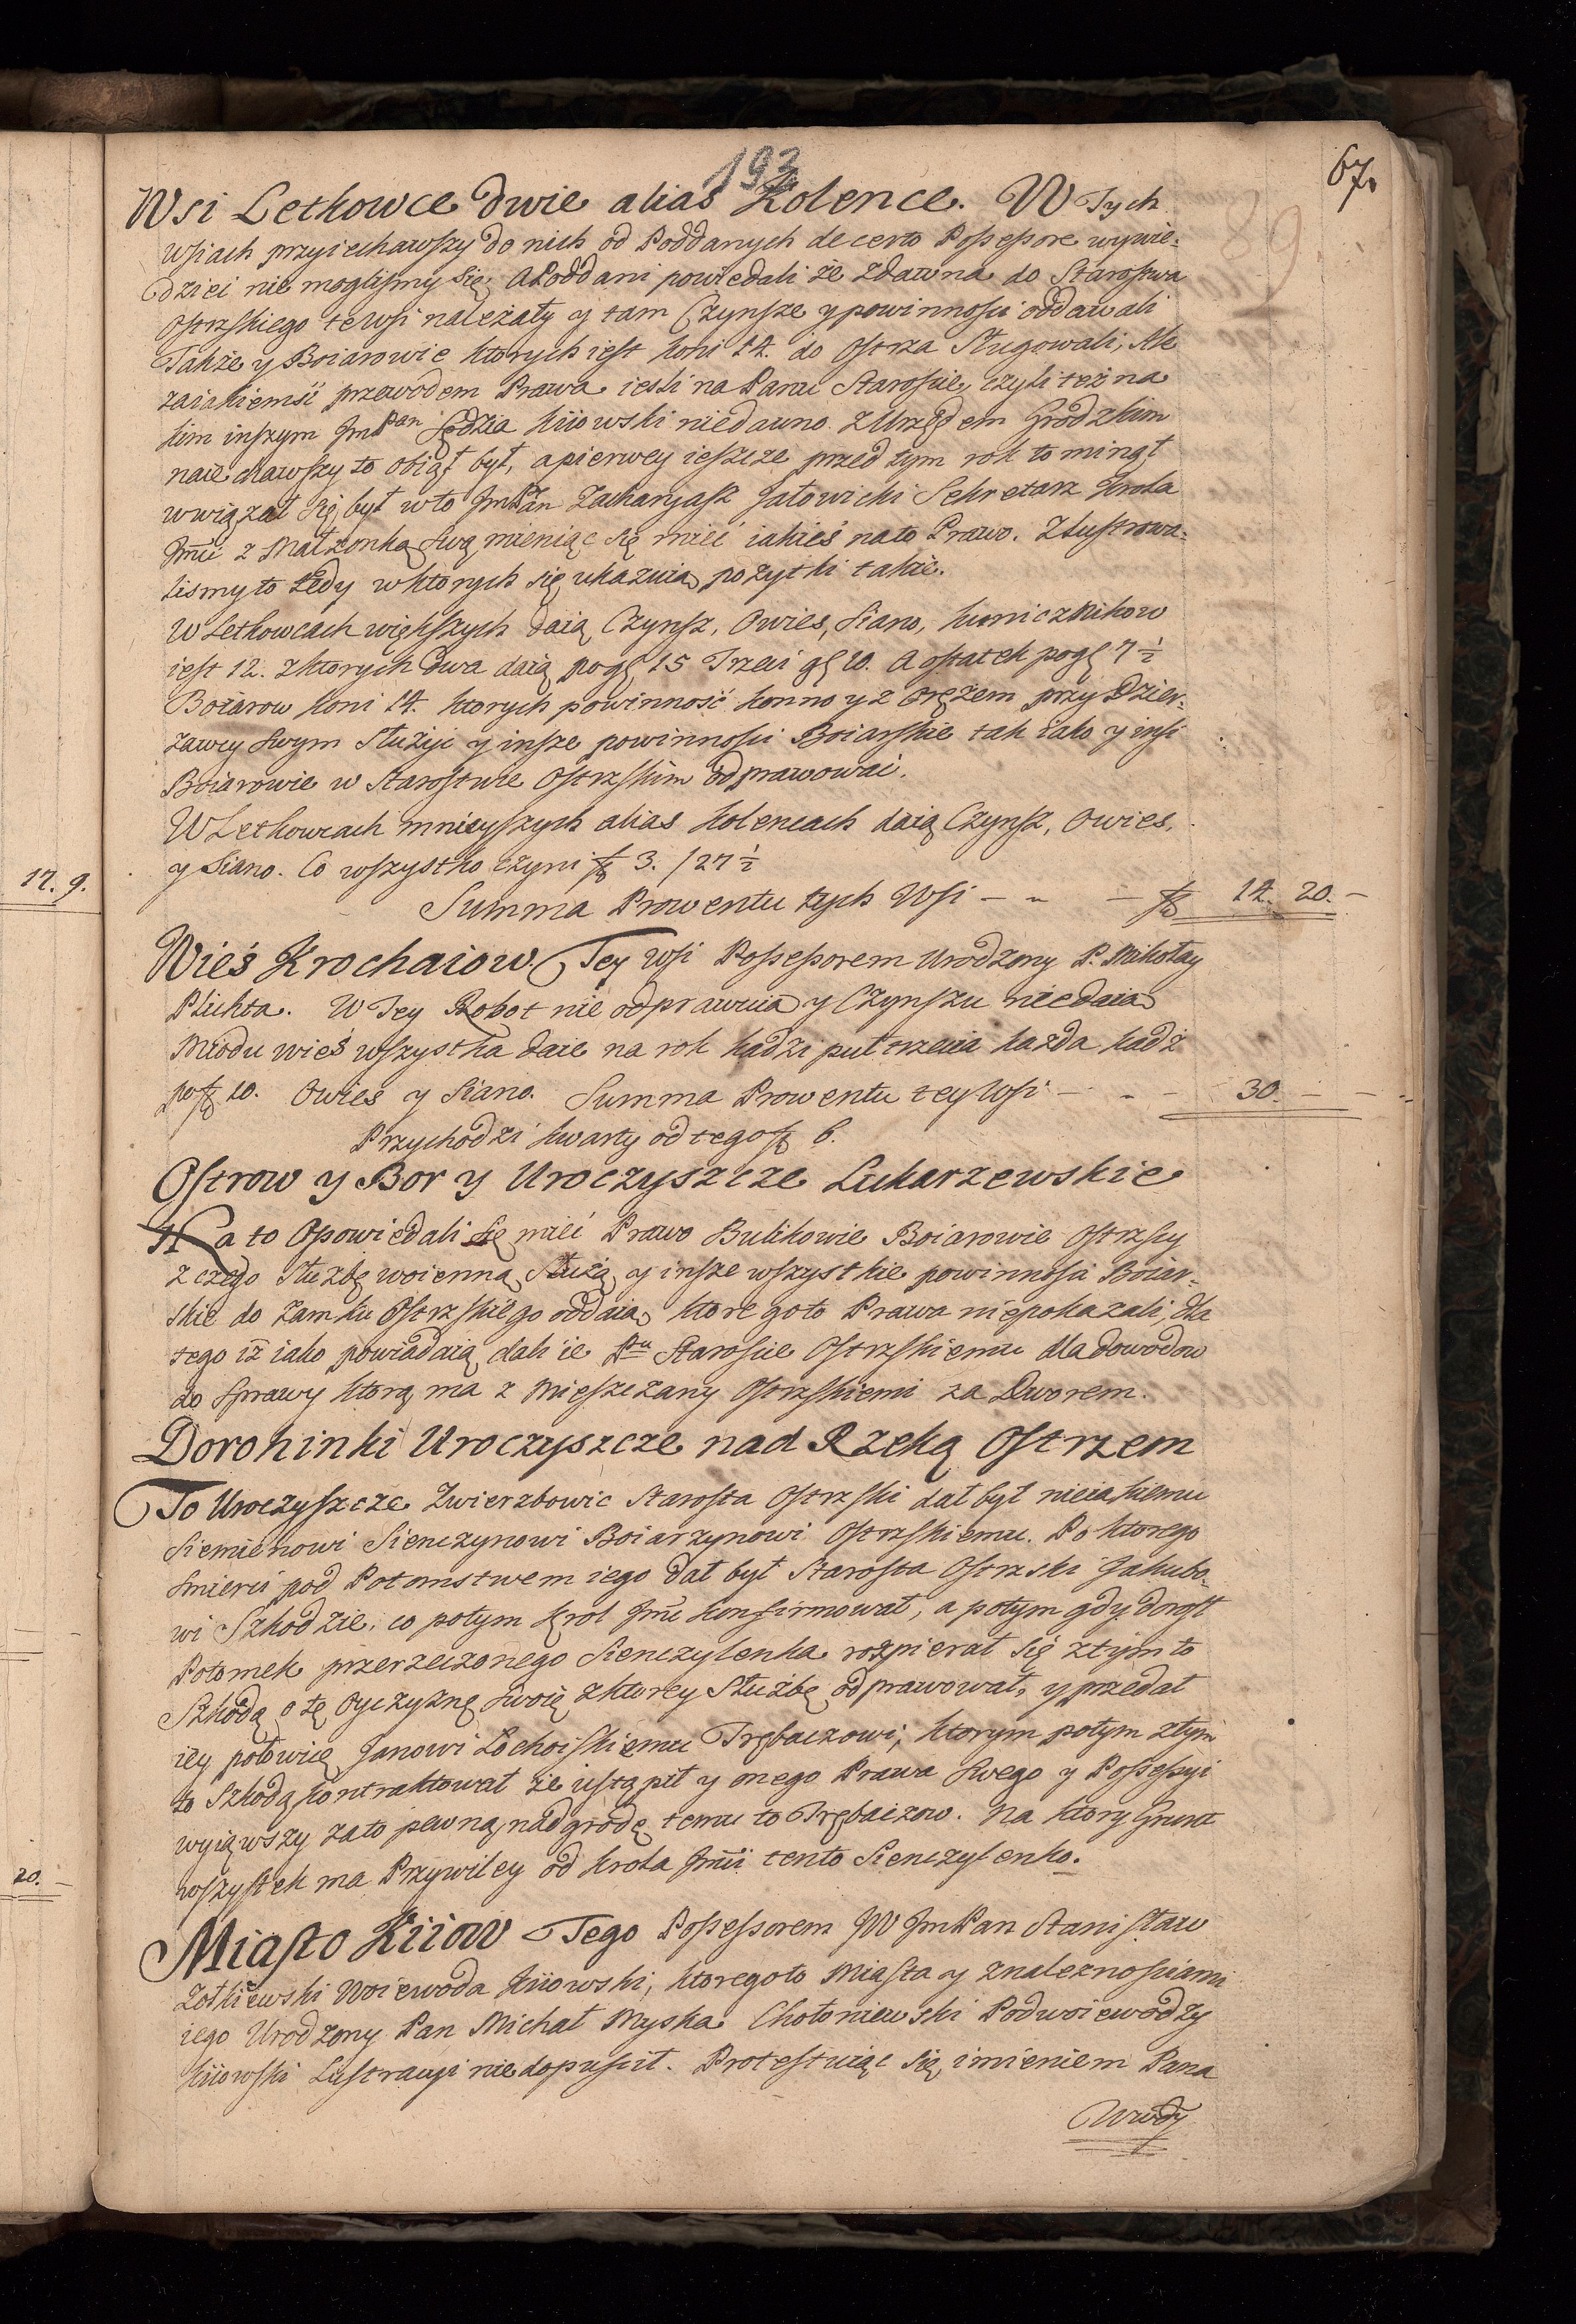 193
67.
89
Wsi Letkowce dwie alias Kolence. W Tych
Wsiach przyiechawszy do nich od Poddanych de certo Possesore wywie-
dziei nie moglismy się, a Poddani powiedali że zdawna do Starostwa
Ostrskiego te Wsi należały y tam Czynsze y powinności oddawali
Także y Boiarowie ktorych iest koni 14. do Ostrza sługowali, Ale
zaiakiemsi przewodem Prawa iesli na Panu Staroście, czyli też na
kim inszym Jm Pan Sędzia Kiiowski niedawno z Urzędem Grodzkim
naiechawszy to obiął był, a pierwey ieszcze przed tym rok to minął
wwiązał się był w to Jm Pan Zacharyasz Jałowicki Sekretarz Krola
Jmci z Małżonką swą mieniąc się mieć iakieś na to Prawo. Zlustrowa-
lismy to tedy w ktorych się ukazuią pożytki takie.
W Letkowcach większych daią Czynsz, Owies, Siano, kuniczników
iest 12. z ktorych dwa daią po gł 15 Trzeci gł 10. a ostatek po gł 7 ½
Boiarow koni 14. ktorych powinność konno y z orężem przy Dzier-
zawcy swym służyć y insze powinności Boiarskie tak iako y insi
Boiarowie w Starostwie Ostrskim odprawować.
W Letkowcach mnieyszych alias Kolencach daią Czynsz, Owies,
y Siano. Co wszystko czyni fl 3. / 27 ½
17. 9.
Summa Prowentu tych Wsi — — — fl 14. 20. —
Wieś Krochaiow. Tey Wsi Possessorem Urodzony P. Mikołay
Plichta. W Tey Robot nie odprawuią y Czynszu nie daią
Miodu wieś wszystka daie na rok kadzi puł trzecia każda kadź
po fl 10. Owies y Siano. Summa Prowentu tey Wsi — — — 30. — —
Przychodzi kwarty od tego fl 6.
Ostrow y Bor y Uroczyszcze Lukarzewskie
Na to Opowiedali się mieć Prawo Bulikowie Boiarowie Ostrscy
z czego służbę woienną służą y insze wszystkie powinności Boiar-
skie do zamku Ostrzskiego oddaią, ktorego to Prawa nie pokazali, dla
tego iż iako powiadaią dali ie Pnu Staroście Ostrskiemu dla dowodow
do Sprawy ktorą ma z Mieszczany Ostrskiemi za Dworem.
Dorohinki Uroczyszcze nad Rzeką Ostrzem
To Uroczyszcze Zwierzbowic Starosta Ostrski dał był nieiakiemu
Siemienowi Sienczynowi Boiarzynowi Ostrskiemu. Po ktorego
śmierci pod Potomstwem iego dał był Starosta Ostrski Jakubo-
wi Szkodzie, co potym Krol Jmc konfirmował, a potym gdy dorosł
Potomek przerzeczonego Sienczylenka rozpierał się z tym to
Szkodą o tę oyczyznę swoię z ktorey Służbę odprawował, y przedał
iey połowicę Janowi Łochoiskiemu Trębaczowi, ktorym potym z tym
to Szkodą kontraktował że iustąpił y onego Prawa swego y Possessyi
wyiąwszy zato pewną nadgrodę temu to Trębaczow. Na ktory Grunt
20.
wszystek ma Przywiley od Krola Jmci tento Sienczylenko.
Miasto Kiiow Tego Possessorem JW Jm Pan Stanisław
Żołkiewski Woiewoda Kiiowski, ktorego to Miasta y z należnościami
iego Urodzony Pan Michał Myska Chołoniewski Podwoiewodzy
Kiiowski Lustracyi nie dopuścił. Protestuiąc się imieniem Pana